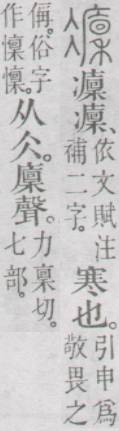 癛癛、依文賦注補二字。寒也。引申爲敬畏之
偁。俗字作懍懍。从仌。廩聲。力稟切。七部。